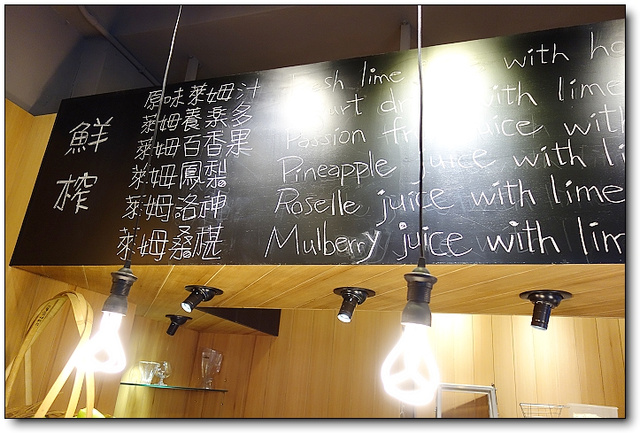 鮮榨
原味萊姆汁
萊姆養樂多
萊姆百香果
萊姆鳳梨
萊姆洛神
萊姆桑椹
fresh lime with ho
with lime
Passion juice wit
Pineapple with li
Roselle juice with lime
Mulberry juice with lim